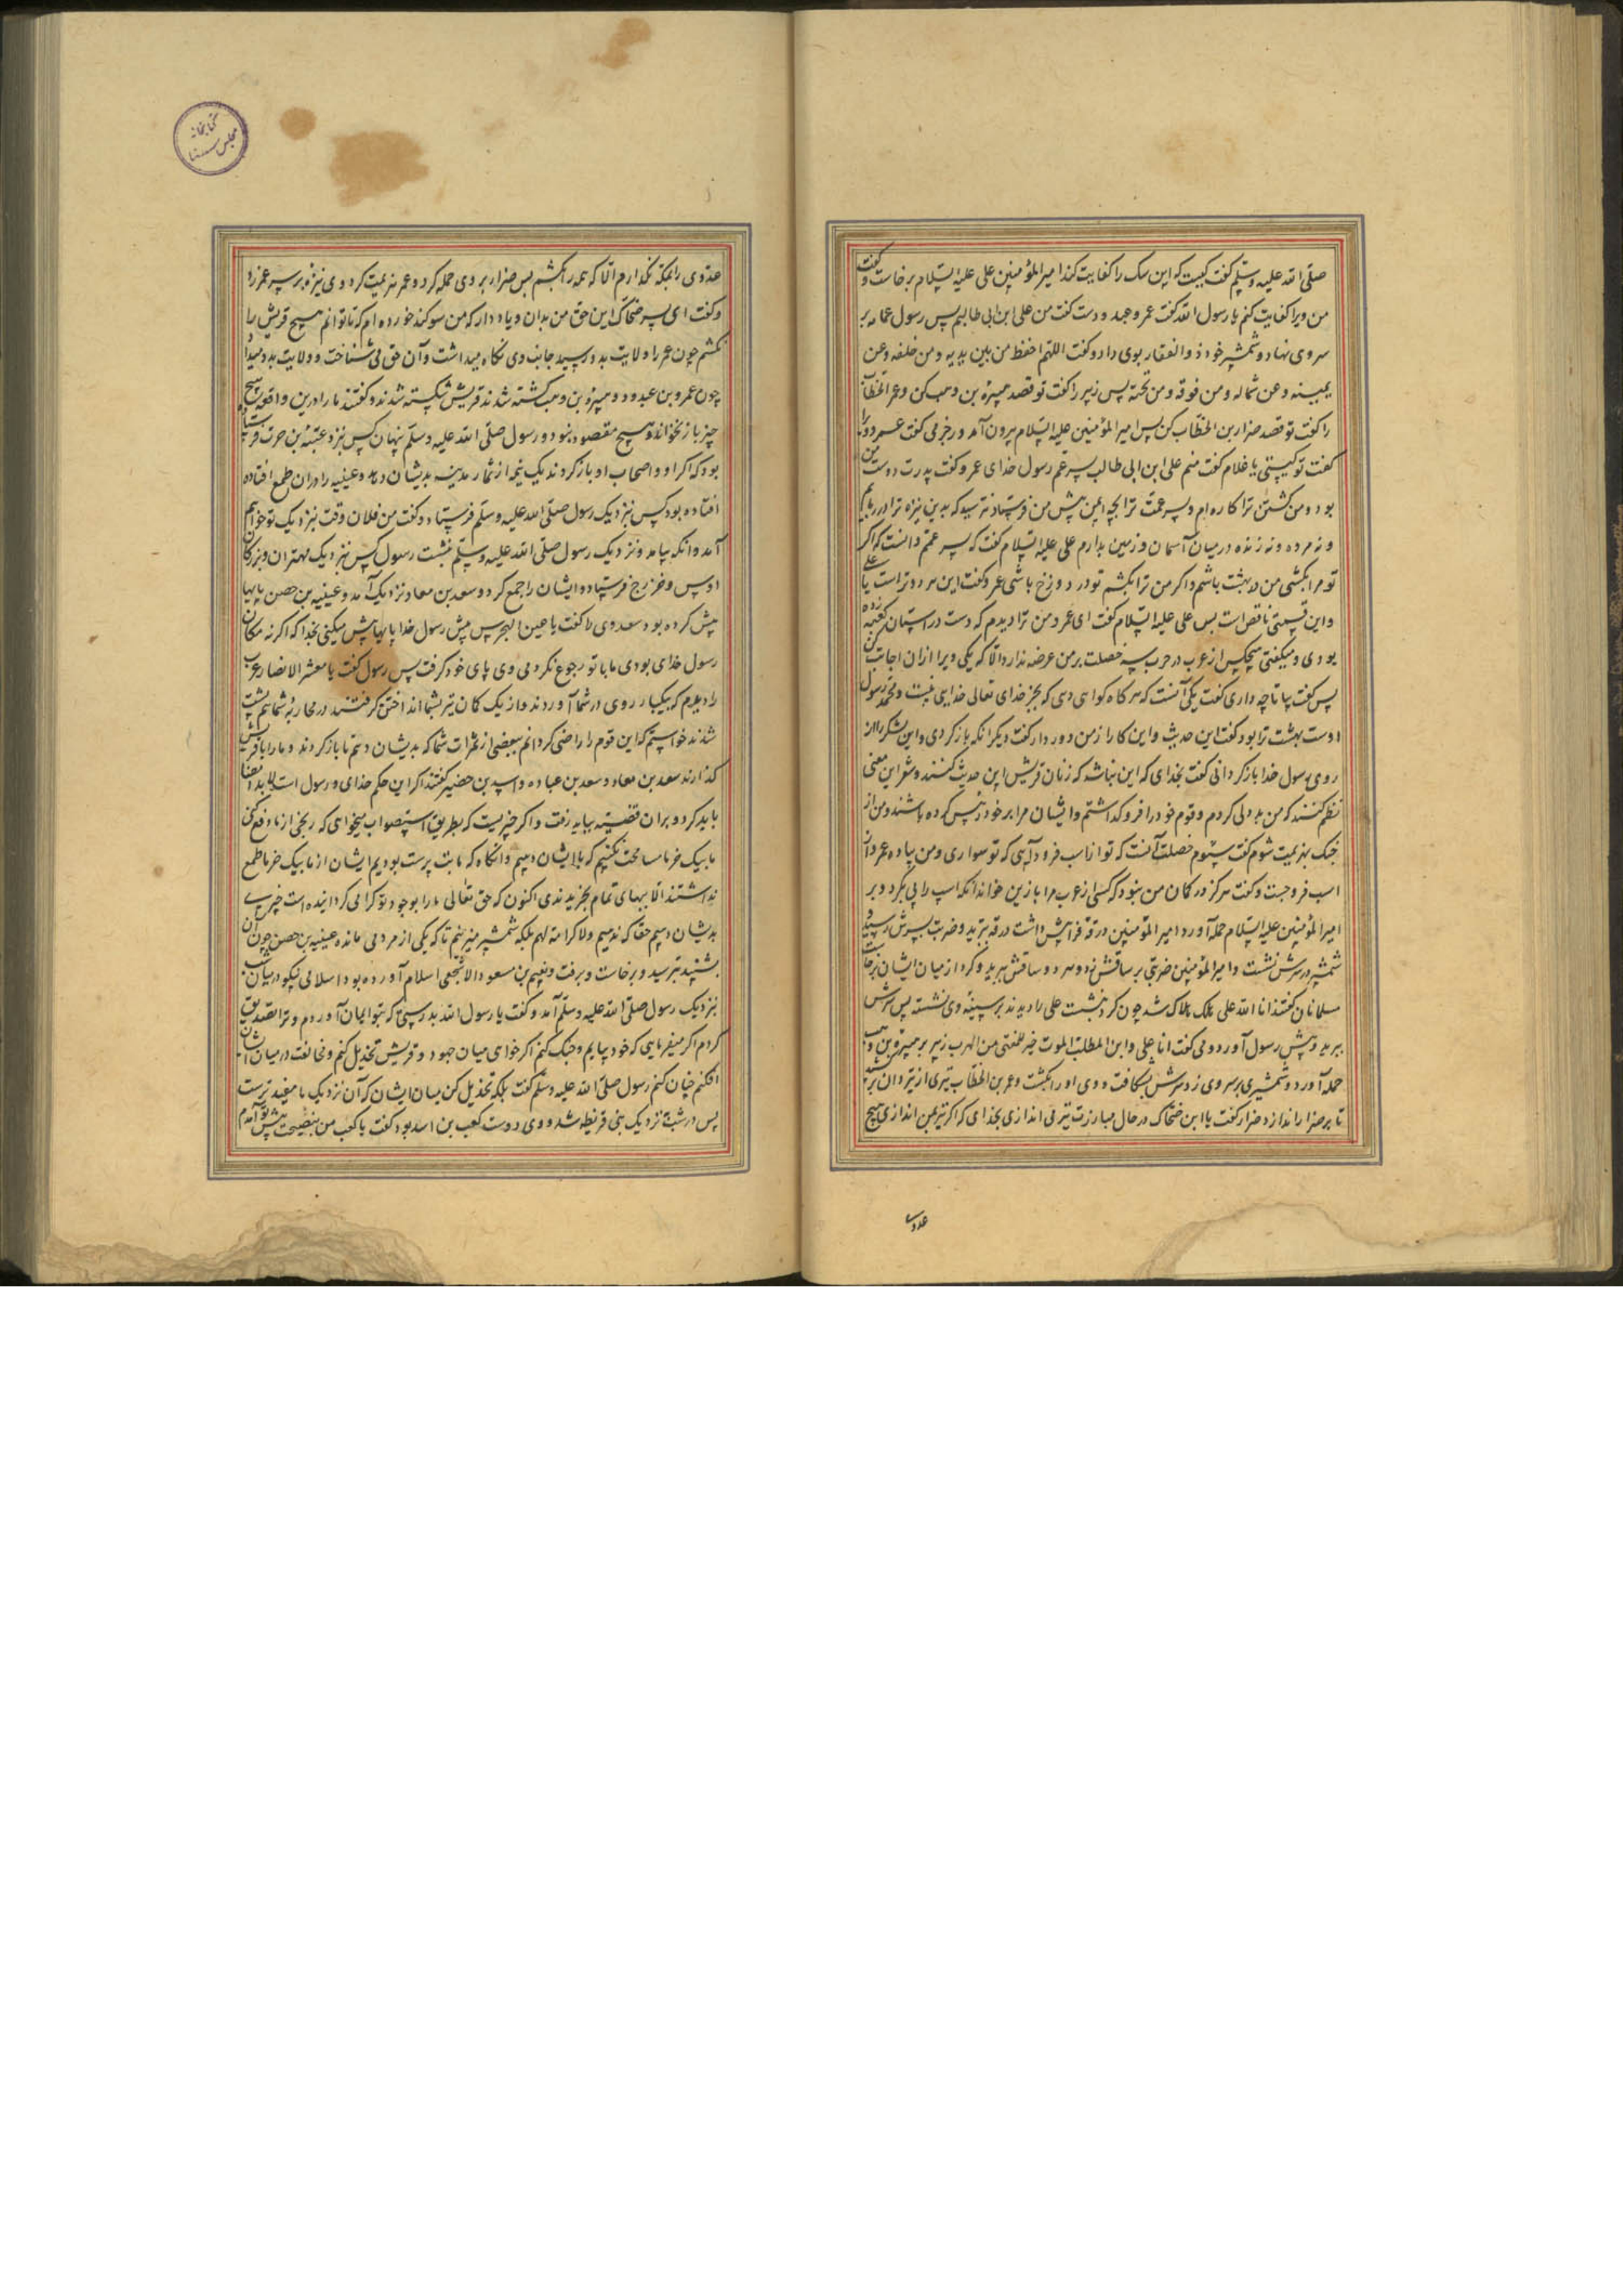 صلّی الله علیه وسلّم گفت کیست که این سک را کفایت کند امیر المؤمنین علی علیه السّلام برخاست و گفت
من ویرا کفایت کنم یا رسول الله گفت عمرو عبد ودست گفت من علی ابن ابی طالبم پس رسول عمامه بر
سر وی نهاد و شمشیر خود ذو الفقار بوی داد و گفت اللّهم احفظ من بین یدیه ومن خلفه وعن
یمینه وعن شماله ومن فوقه ومن تحته پس زبیر را گفت تو قصد میره بن وهب کن وعمر الخطاب
را گفت تو قصد ضرار بن الخطّاب کن پس امیر المؤمنین علیه السّلام بیرون آمد ورجز می گفت عمرو ورا
گفت تو کیستی یا غلام گفت منم علی ابن ابی طالب پسر عم رسول خدای عمرو گفت پدرت دوست من
بود ومن کشتن ترا کاره ام وپسر عمت ترا بچه ایمن پیش من فرستاد نترسید که بدین نیزه ترا در ربایم
ونه مرده ونه زنده در میان آسمان وزمین بدارم علی علیه السّلام گفت که پسر عمّم دانست که اگر
تو مرا بکشی من در بهشت باشم واگر من ترا بکشم تو در دوزخ باشی عمرو گفت این هر دو تراست یا علی
واین قسمتی ناقص است پس علی علیه السّلام گفت ای عمرو من ترا دیدم که دست در استان کعبه زده
بودی ومیگفتی هیچکس از عرب در حرب سه خصلت بر من عرضه ندارد الّا که یکی ویرا ازان اجابت کنم
پس گفت بیا تا چه داری گفت یکی آنست که هر گاه کواهی دهی که بجز خدای تعالی خدایی نیست ومحمّد رسول
اوست بهشت ترا بود گفت این حدیث واین کار از من دور دار گفت دیگر آنکه باز گردی واین لشکر را از
روی رسول خدا باز گردانی گفت بخدای که این نباشد که زنان قریش این حدیث کنند وشعر این معنی
نظم کنند که من بددلی کردم وقوم خود را فرو گذاشتم وایشان مرا بر خود رئیس کرده باشند ومن از
جنک بهزیمت شوم گفت سیّوم خصلت آنست که تو از اسب فرود آیی که تو سواری ومن پیاده عمرو از
اسب فرو جست وگفت هرگز در گمان من نبود که کسی از عرب مرا بازین خواند آنکه اسب را پی بکرد وبر
امیر المؤمنین علیه السّلام حمله آورد امیر المؤمنین درقه فرا پیش داشت درقه ببرید وضربت بسرش رسید
شمشیر در سرش نشست وامیر المؤمنین ضربتی بر ساقش زد وهر دو ساقش ببرید وگرد از میان ایشان برخاست
مسلمانان گفتند انا لله علی هلک هلاک شد چون گرد بنشست علی را دیدند بر سینهٔ وی نشسته پس سرش
ببرید وپیش رسول آورد ومی گفت انا علی وابن المطلب الموت خیر للفتی من الهرب زبیر بر میره بن وهب
حمله آورد وشمشیری بر سر وی زد وسرش بشکافت ووی اورا بکشت وعمر بن الخطّاب تیری از تیردان برکشید
تا بر ضرار اندازد ضرار گفت یا ابن ضحّاک در حال مبارزت تیر می اندازی بخدای که اگر تیر بمن اندازی هیچ
عدوی
عدوی را بمکه نگذارم الّا که همه را بکشم پس ضرار بر وی حمله کرد وعمر هزیمت کرد وی نیزه بر سر عمر زد
وگفت ای پسر ضحّاک این حق من بدان ویاد دار که من سوگند خورده ام که تا توانم هیچ قریش را
نکشم چون عمر را ولایت بدو رسید جانب وی نگاه میداشت وآن حق می شناخت وولایت بدو میداد
چون عمرو بن عبدود ومیره بن وهب کشته شدند قریش شکسته شدند وگفتند ما را درین واقعه هیچ
چیز باز نخواند وهیچ مقصود نبود ورسول صلّی الله علیه وسلّم پنهان کس نزد عتبه بن حرث فرستاد
بود که اگر او واصحاب او باز گردند یک نیمه از ثمار مدینه بدیشان دهد وعیینه را دران طمع افتاده
افتاده بود کس نزدیک رسول صلّی الله علیه وسلّم فرستاد وگفت من فلان وقت نزدیک تو خواهم
آمد وآنکه بیامد ونزدیک رسول صلّی الله علیه وسلّم بنشست رسول کس نزدیک مهتران وبزرگان
اوس وخزرج فرستاد وایشان را جمع کرد وسعد بن معاد نزدیک آمد وعیینه بن حصن پایها
پیش کرده بود سعد وی را گفت یا عین الهجرس پیش رسول خدا پایها پیش میکنی بخدا که اگر نه مکان
رسول خدای بودی ما با تو رجوع نکردمی وی پای خود گرفت پس رسول گفت یا معشر الانصار عرب
را دیدم که بیکبار روی در شما آوردند واز یک کمان تیر بشما انداختن گرفتند در محاربهٔ شما هم پشت
شدند خواستم که این قوم را راضی گردانم ببعضی از ثمرات شما که بدیشان دهم تا باز گردند وما را با قریش
گذارند سعد بن معاد وسعد بن عباده واسید بن حضیر گفتند اگر این حکم خدای ورسول است لابد امضا
باید کرد وبران قضیّت بباید رفت واگر چیزیست که بطریق استصواب میخواهی که رنجی از ما دفع کنی
ما بیک خرما مسامحت نکنیم که بالایشان دهیم وآنگاه که ما بت پرست بودیم ایشان از ما بیک خرما طمع
نداشتند الّا ببهای تمام بخریدندی اکنون که حق تعالی ما را بوجود تو گرامی گردانیده است چیزی
بدیشان دهیم حقّا که ندهیم ولا کرامة لهم بلکه شمشیر میزنیم تا که یکی از مردمی مانده عیینه بن حصن چون آن
بشنید بترسید وبرخاست وبرفت ونعیم بن مسعود الاشجعی اسلام آورده بود اسلامی نیکو در شب
نزدیک رسول صلّی الله علیه وسلّم آمد وگفت یا رسول الله بدرستی که بتو ایمان آوردم وترا تصدیق
کردم اگر میفرمایی که خود بیایم وجنک کنم اگر خواهی میان جهود وقریش تخذیل کنم ومخالفت در میان ایشان
افکنم چنان کنم رسول صلّی الله علیه وسلّم گفت بلکه تخذیل کن میان ایشان که آن نزدیک ما مفیدترست
پس در شب نزدیک بنی قریظه شد ووی دوست کعب بن اسد بود گفت یا کعب من بنصیحت پیش تو آمدم
کتابخانه
مجلس سنا